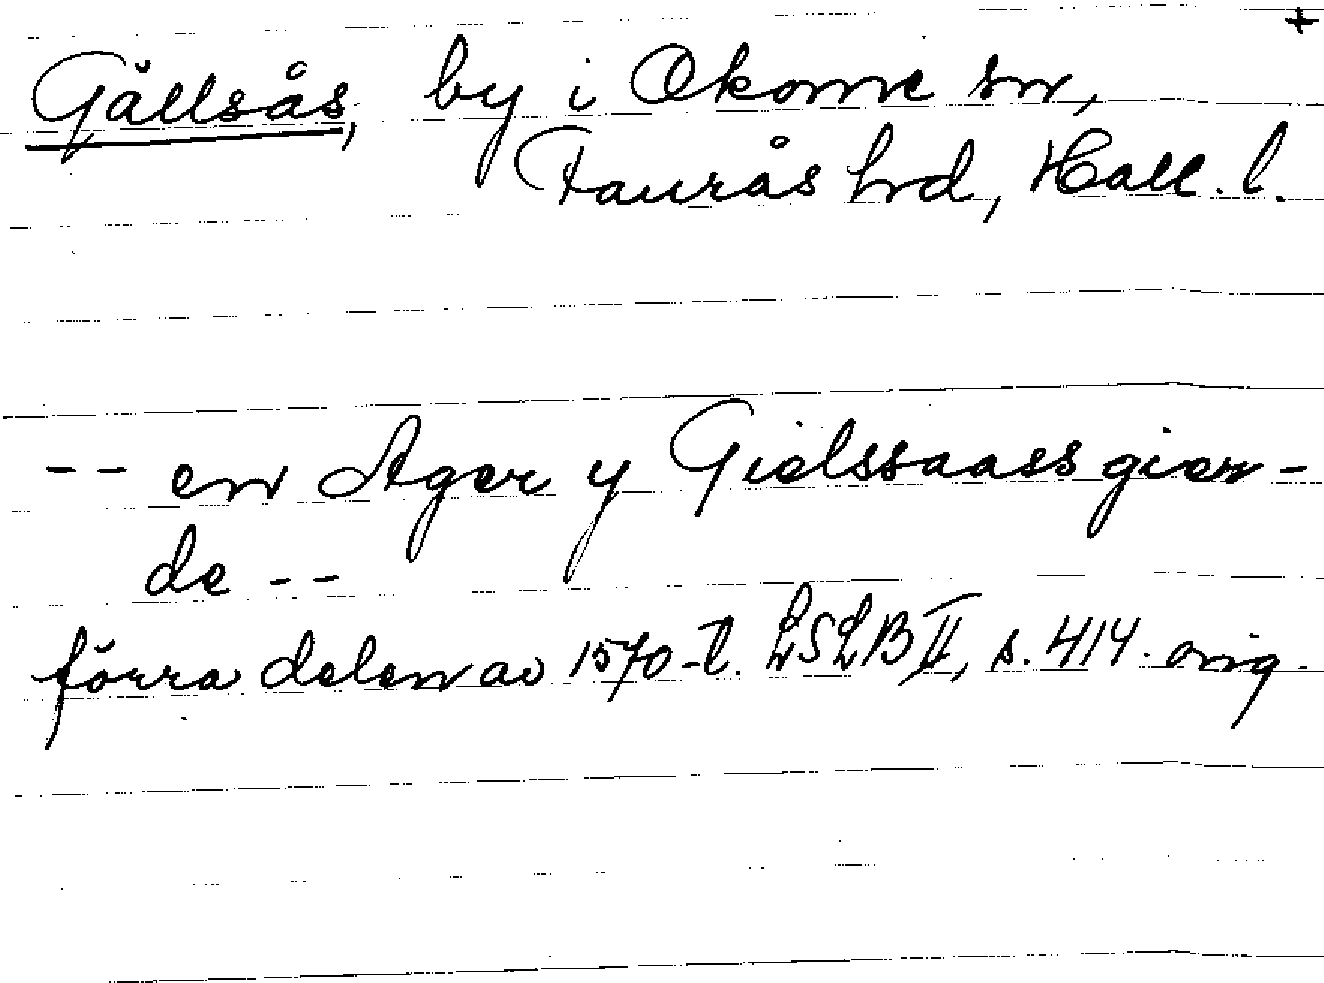 +
Gällsås, by i Okome sn,
Faurås hrd, Hall. l.
-- en Ager y Gielssaass gier-
de --
förra delen av 1570-t. LSLB II, s. 414. orig.